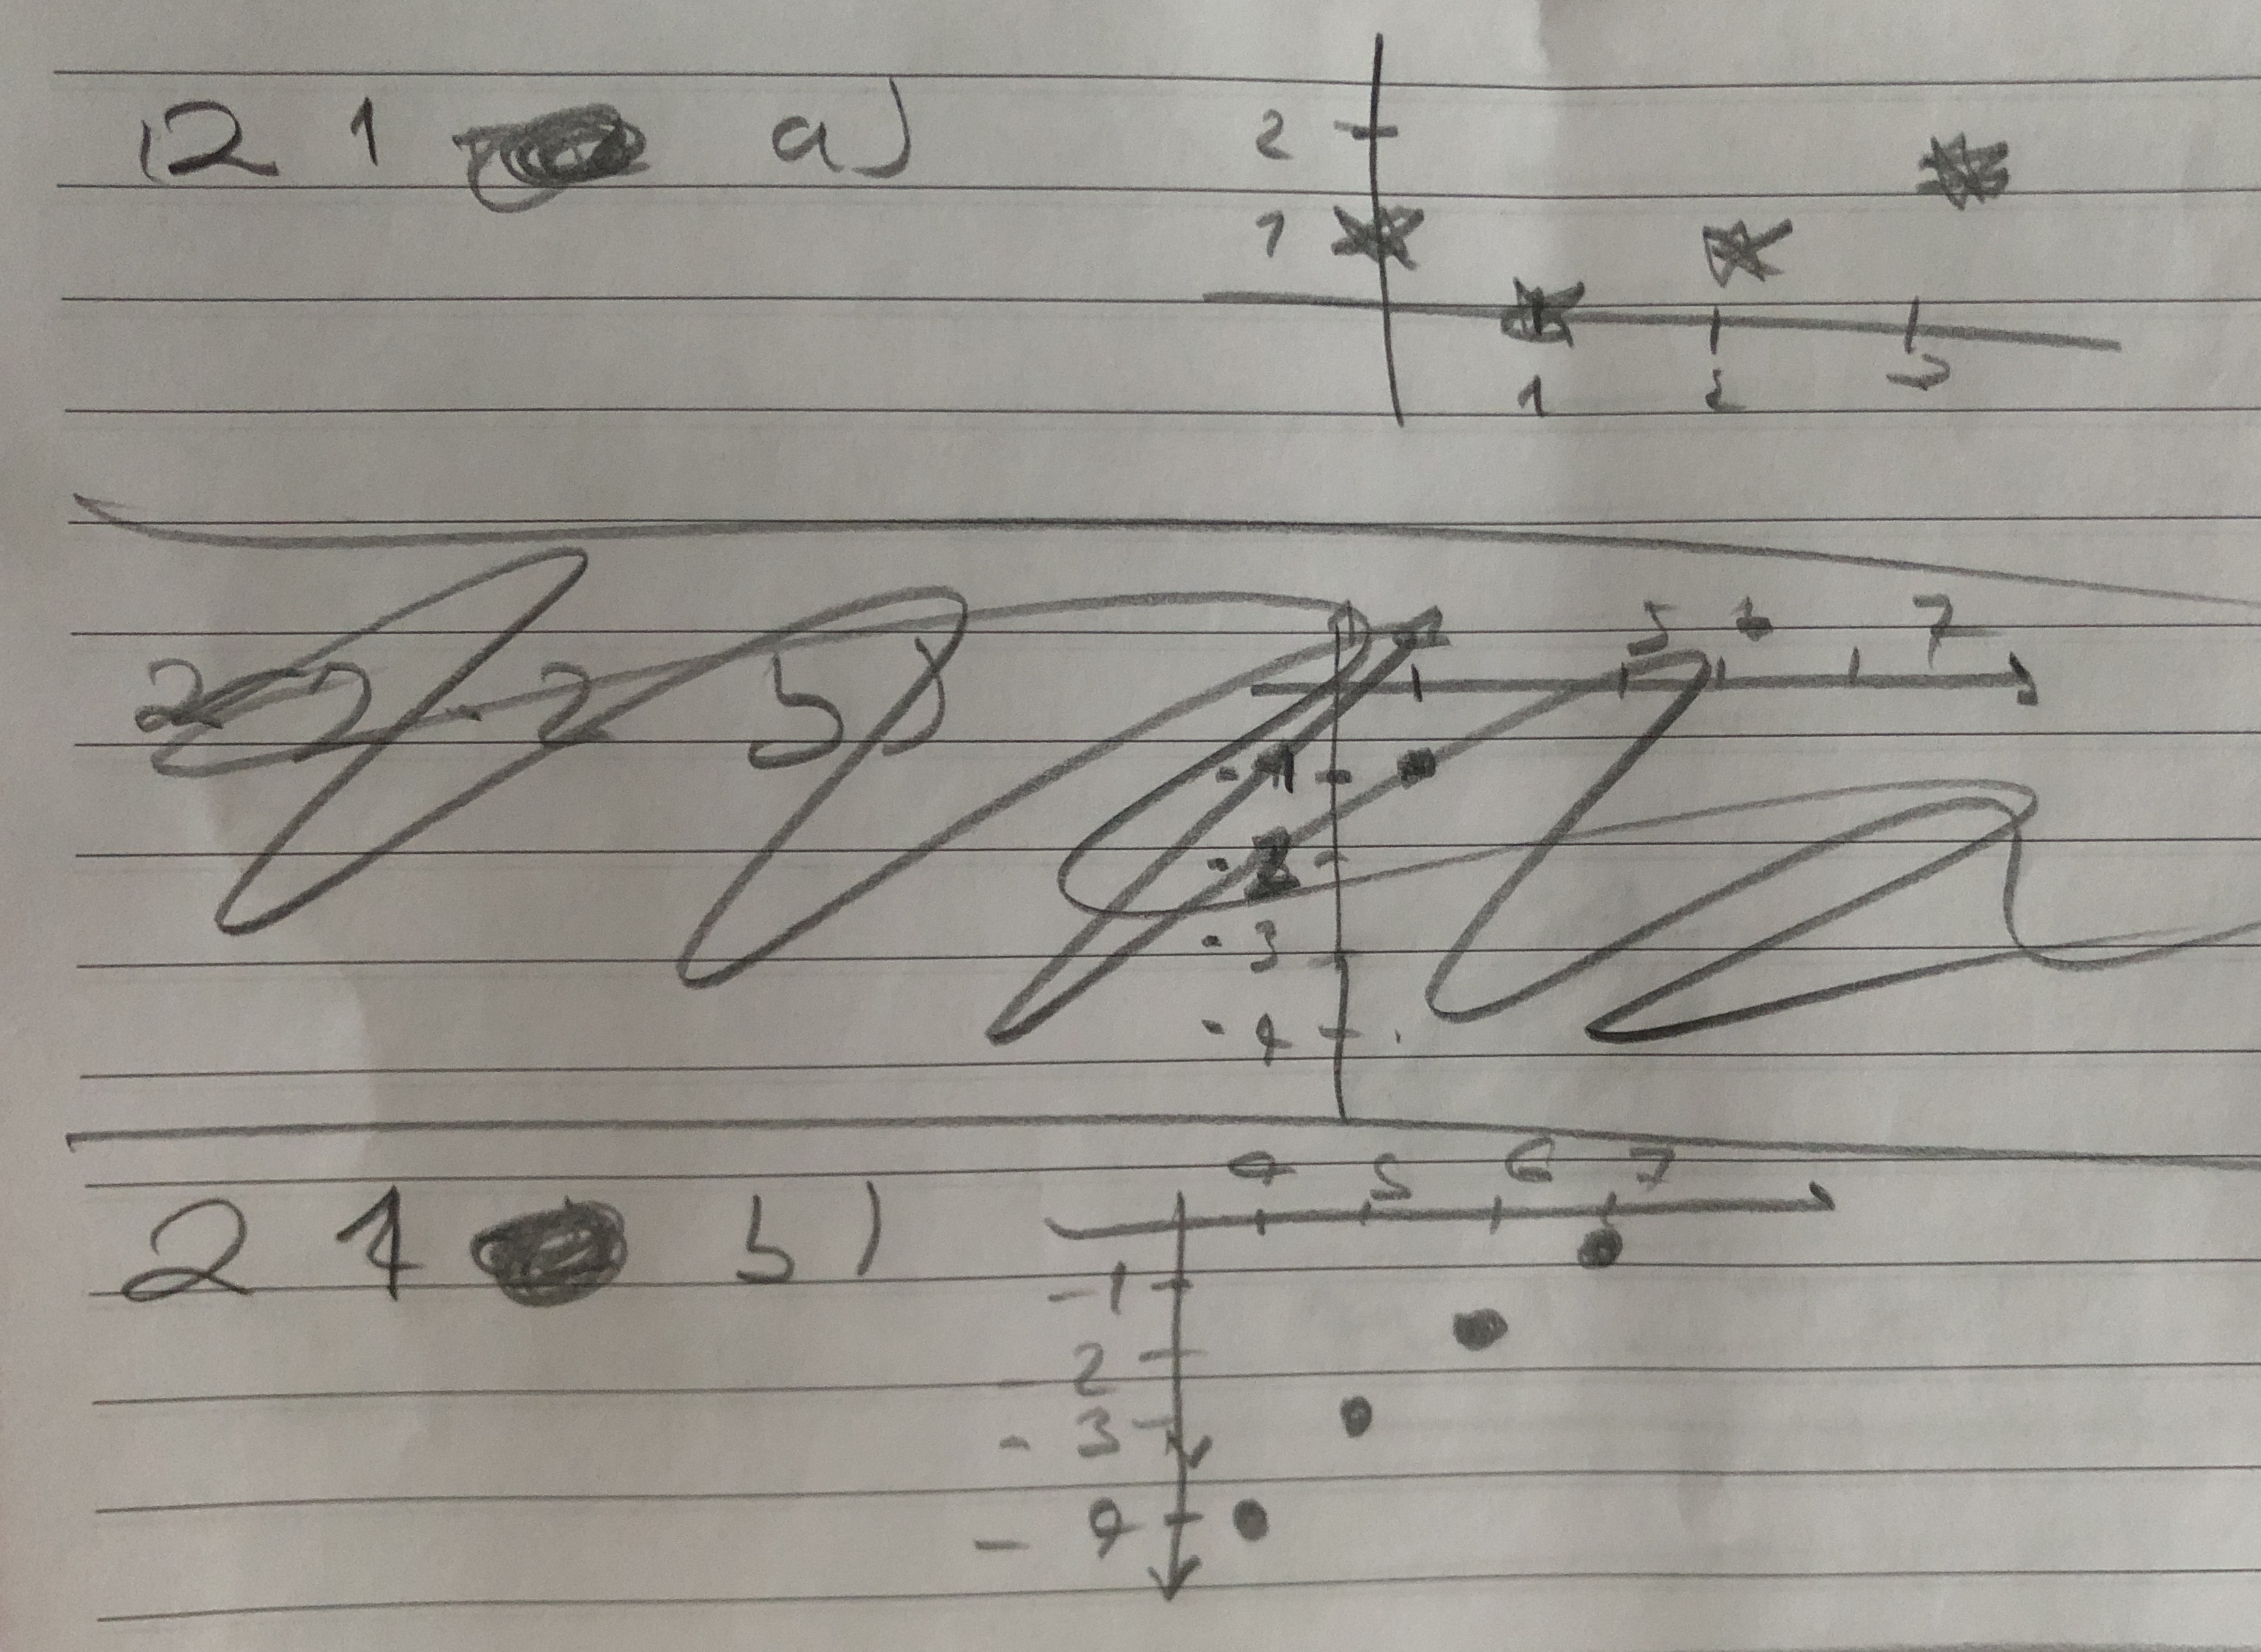 12 1 a) 2
1
1 2 3
2 2 - 2 b) 5 6 7
- 1
- 2
- 3
- 4
2 1 b) 4 5 6 7
-1
- 2
- 3
- 4